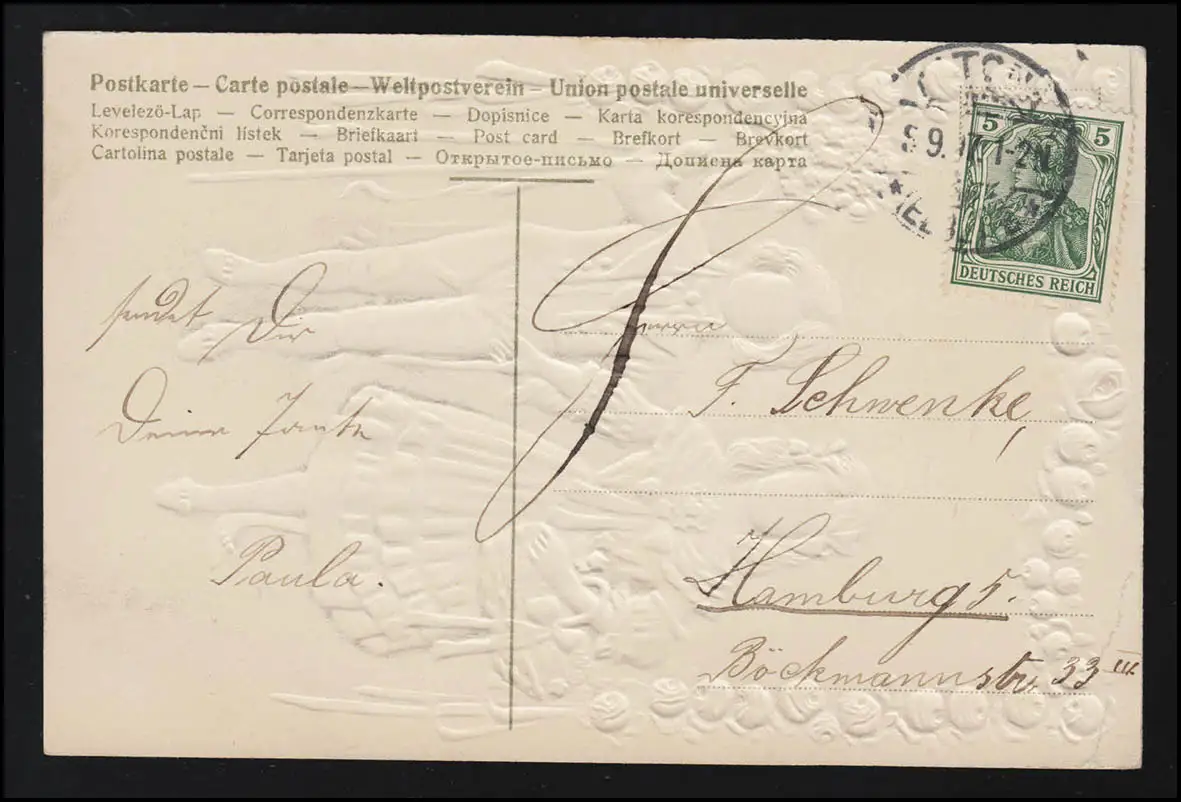 Postkarte – Carte postale – Weltpostverein – Union postale universelle
Levelezö-Lap – Correspondenzkarte – Dopisnice – Karta korespondencyjna
Korespondenčni lístek – Briefkaart – Post card – Brefkort – Brevkort
Cartolina postale – Tarjeta postal – Открытое-письмо – Дописна карта
5 5
DEUTSCHES REICH
sendet Dir
Deine Tante
Paula.
Herrn
F. Schwenke,
Hamburg 5.
Böckmannstr. 33 III.